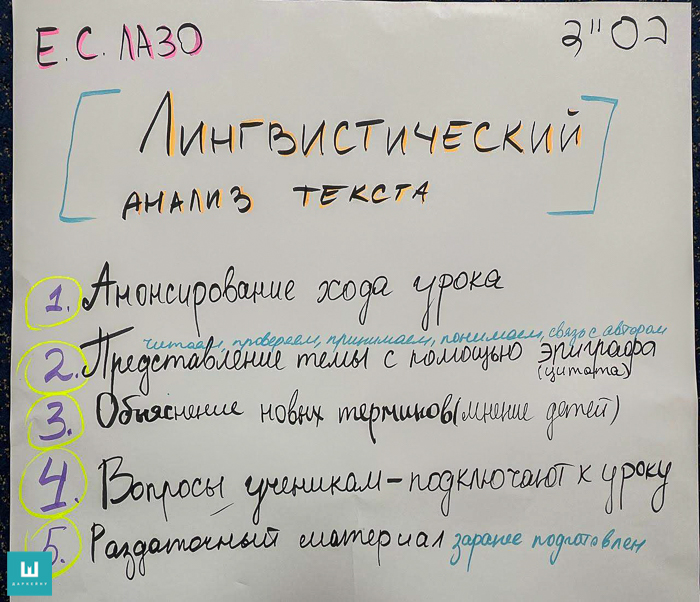 Е.С. ЛАЗО
בס"ד
Лингвистический
анализ текста
1. Анонсирование хода урока
читаем, проверяем, принимаем, понимаем, связь с автором
2. Представление темы с помощью эпиграфа
(цитата)
3. Объяснение новых терминов (мнение детей)
4. Вопросы ученикам - подключают к уроку
5. Раздаточный материал заранее подготовлен
Ш